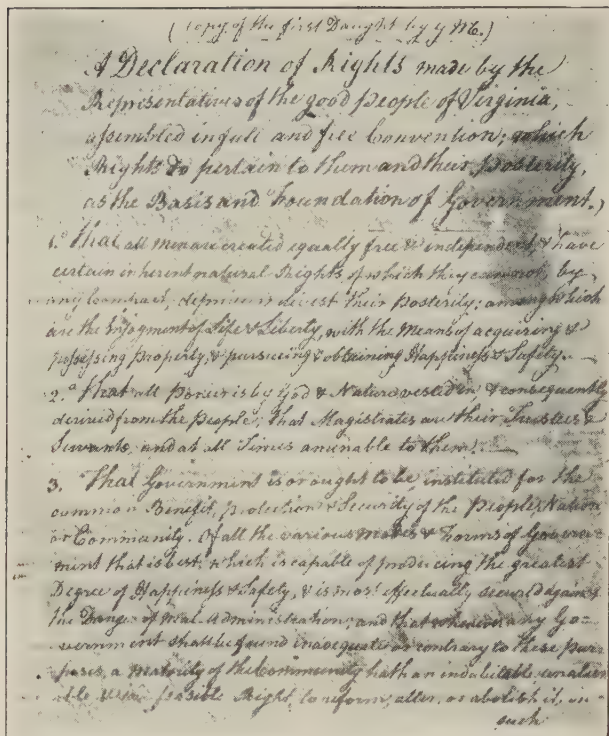 (Copy of the first Daught by G M.)
A Declaration of Rights made by the
Representatives of the good people of Virginia,
assembled in full and free Convention; which
Rights do pertain to them and their posterity,
as the Basis and Foundation of Government.)
1.º That all men are created equally free & independent, & have
certain inherent natural Rights, of which they cannot, by
any Compact, deprive or divest their Posterity; among which
are the Enjoyment of Life & Liberty, with the Means of acquiring &
possessing Property, & pursueing & obtaining Happiness & Safety.
2.º That all Power is by God & Nature vested in & consequently
derived from the People; that Magistrates are their Trustees &
Servants, and at all Times amenable to them.
3. That Government is or ought to be, instituted for the
common Benefit, protection & Security of the People, Nation
or Community. Of all the various modes & Forms of Govern-
ment that is best, which is capable of producing the greatest
Degree of Happiness & Safety, & is most effectually secured against
the Danger of mal-administration; and that whenever any Go-
vernment shall be found inadequate or contrary to these pur-
poses, a majority of the Community hath an indubitable unalien-
able & indefeasible Right, to reform, alter, or abolish it, in
such